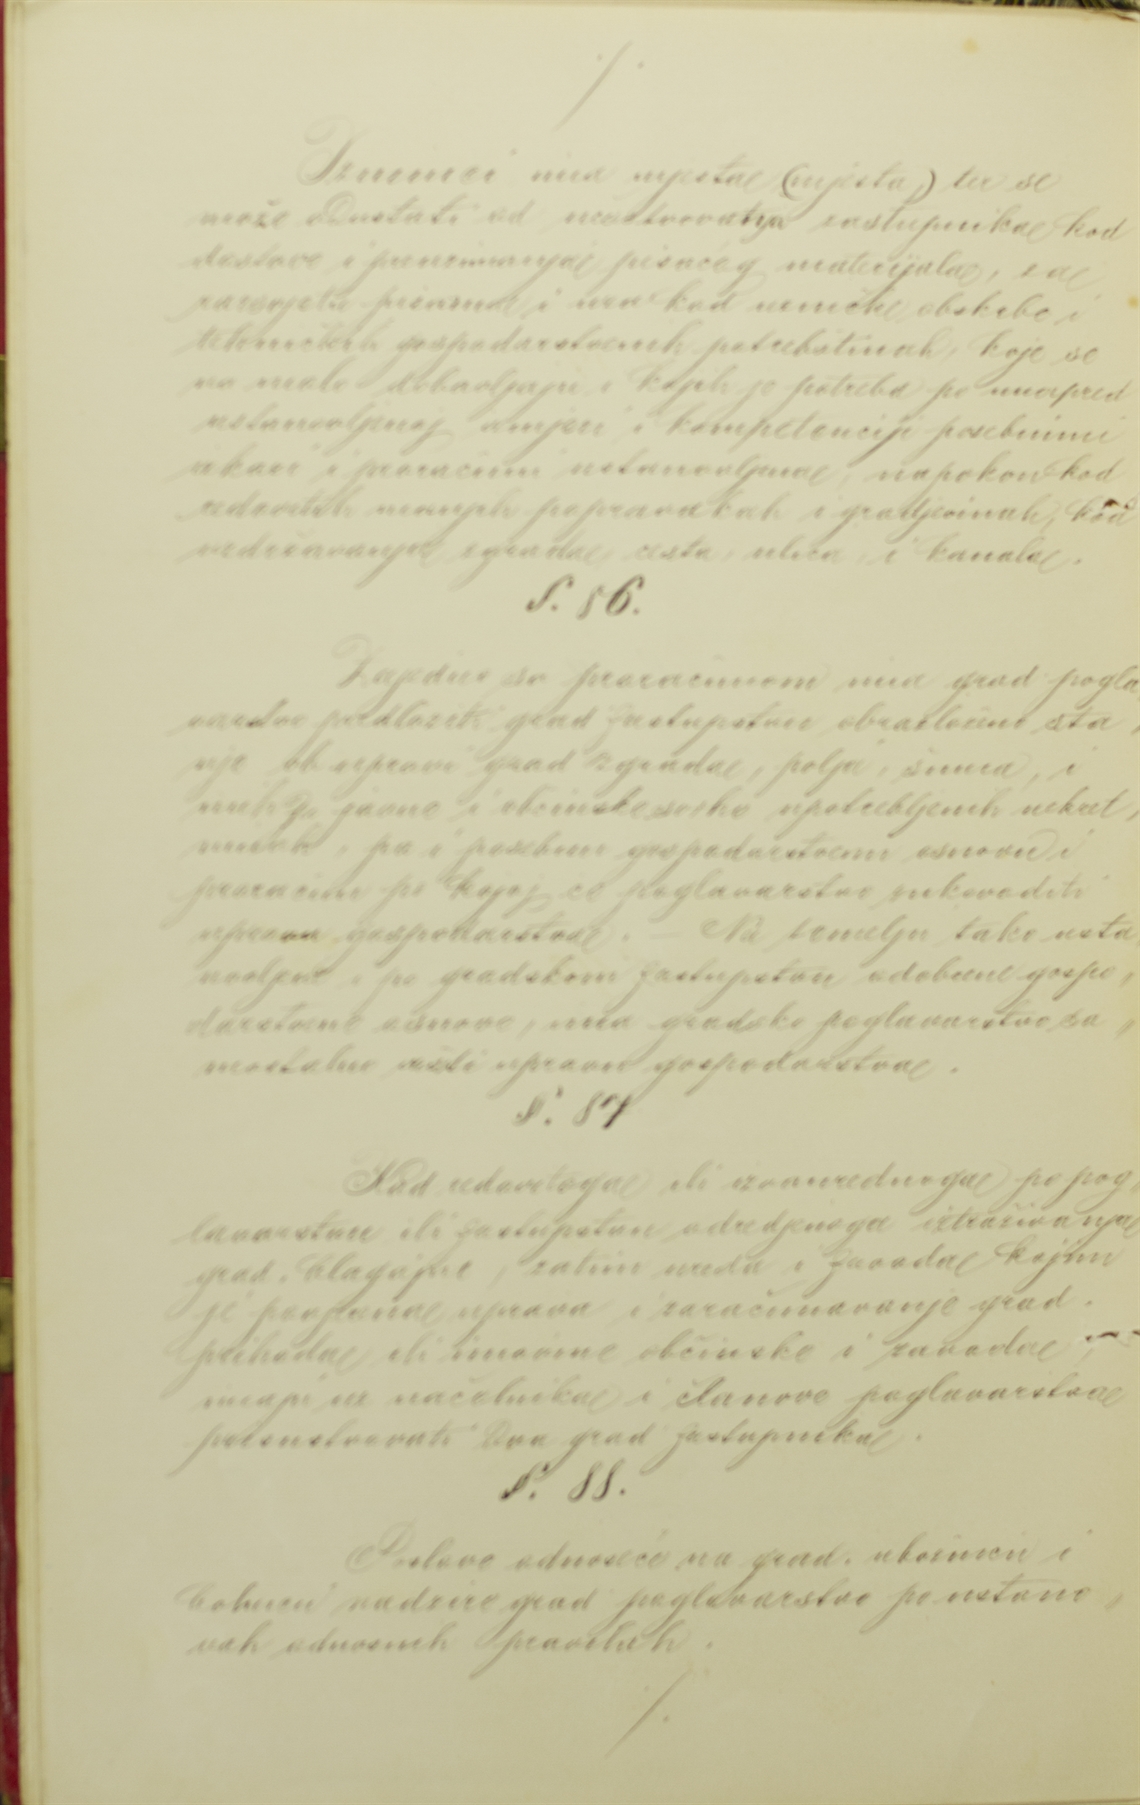 ./.
Iznimci ima mjesta (mjesta) ter se
može odustati od učestvovanja zastupnika kod
dostave i preuzimanja pisaćeg materijala, za
razsvjetu pisarna i kod obskrbe i
gospodarstvenih potrebštinah, koje se
na malo dobavljaju i kojih je potreba po unapred
ustanovljenoj i kompetenciji posebnimi
i proračuni ustanovljena, napokon kod
redovitih manjih popravakah i gradjevinah, kod
uzdržavanja zgrada, cesta, ulica, i kanala.
§. 86.
Zajedno sa proračunom ima grad pogla
varstvo predložiti grad zastupstvu obrazloženo sta,
nje ob upravi grad zgrada, polja, šuma, i
inih za javne i obćinske svrhe upotrebljenih nekret,
ninah, pa i posebnu gospodarstvenu osnovu i
proračun po kojoj će poglavarstvo rukovoditi
upravu gospodarstva. — Na temelju tako usta
novljene i po gradskom zastupstvu odobrene gospo,
darstvene osnove, ima gradsko poglavarstvo sa,
mostalno upravu gospodarstva.
§. 87
Kod redovitoga ili izvanrednoga po pog,
lavarstvu ili zastupstvu odredjenoga iztraživanja
grad. blagajne, zatim ureda i zavoda kojim
je povjerena uprava i zaračunavanje grad.
prihoda ili imovine obćinske i zavoda,
imaju uz načelnika i članove poglavarstva
prisustvovati dva grad zastupnika.
§. 88.
Poslove odnoseće na grad. ubožnicu i
bolnicu nadzire grad poglavarstvo po ustano,
vah odnosnih pravilah.
./.